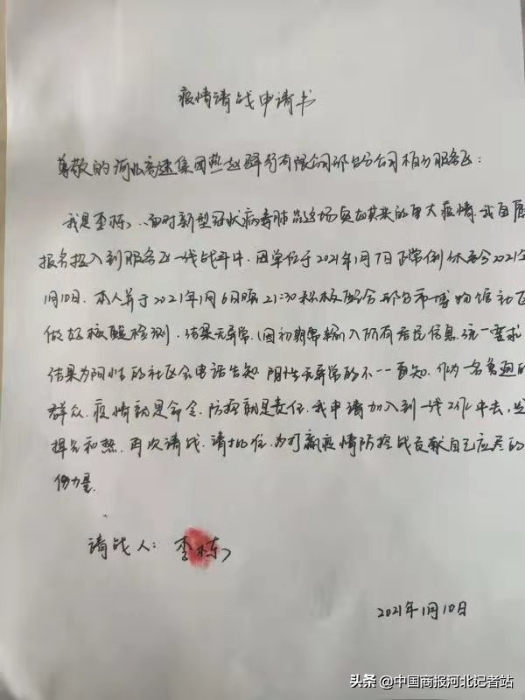 疫情请战申请书
尊敬的河北高速集团燕赵驿行有限公司邢台分公司柏乡服务区:
我是李栋,面对新型冠状病毒肺炎这场突如其来的重大疫情,我自愿
报名投入到服务区一线战斗中。因单位于2021年1月7日正常倒休至今2021年
1月10日。本人并于2021年1月6日晚21:30积极配合邢台市博物馆社区
做好核酸检测,结果无异常,(因初期需输入所有居民信息,统一要求
结果为阳性的社区会电话告知,阴性无异常的不一一再知。作为一名普通的
群众,疫情就是命令,防控就是责任,我申请加入到一线工作中去,
挥 和 ,再次请战,请批准,为打赢疫情防控战贡献自己应尽的
份力量.
请战人:李栋
2021年1月10日
头条 @中国商报河北记者站